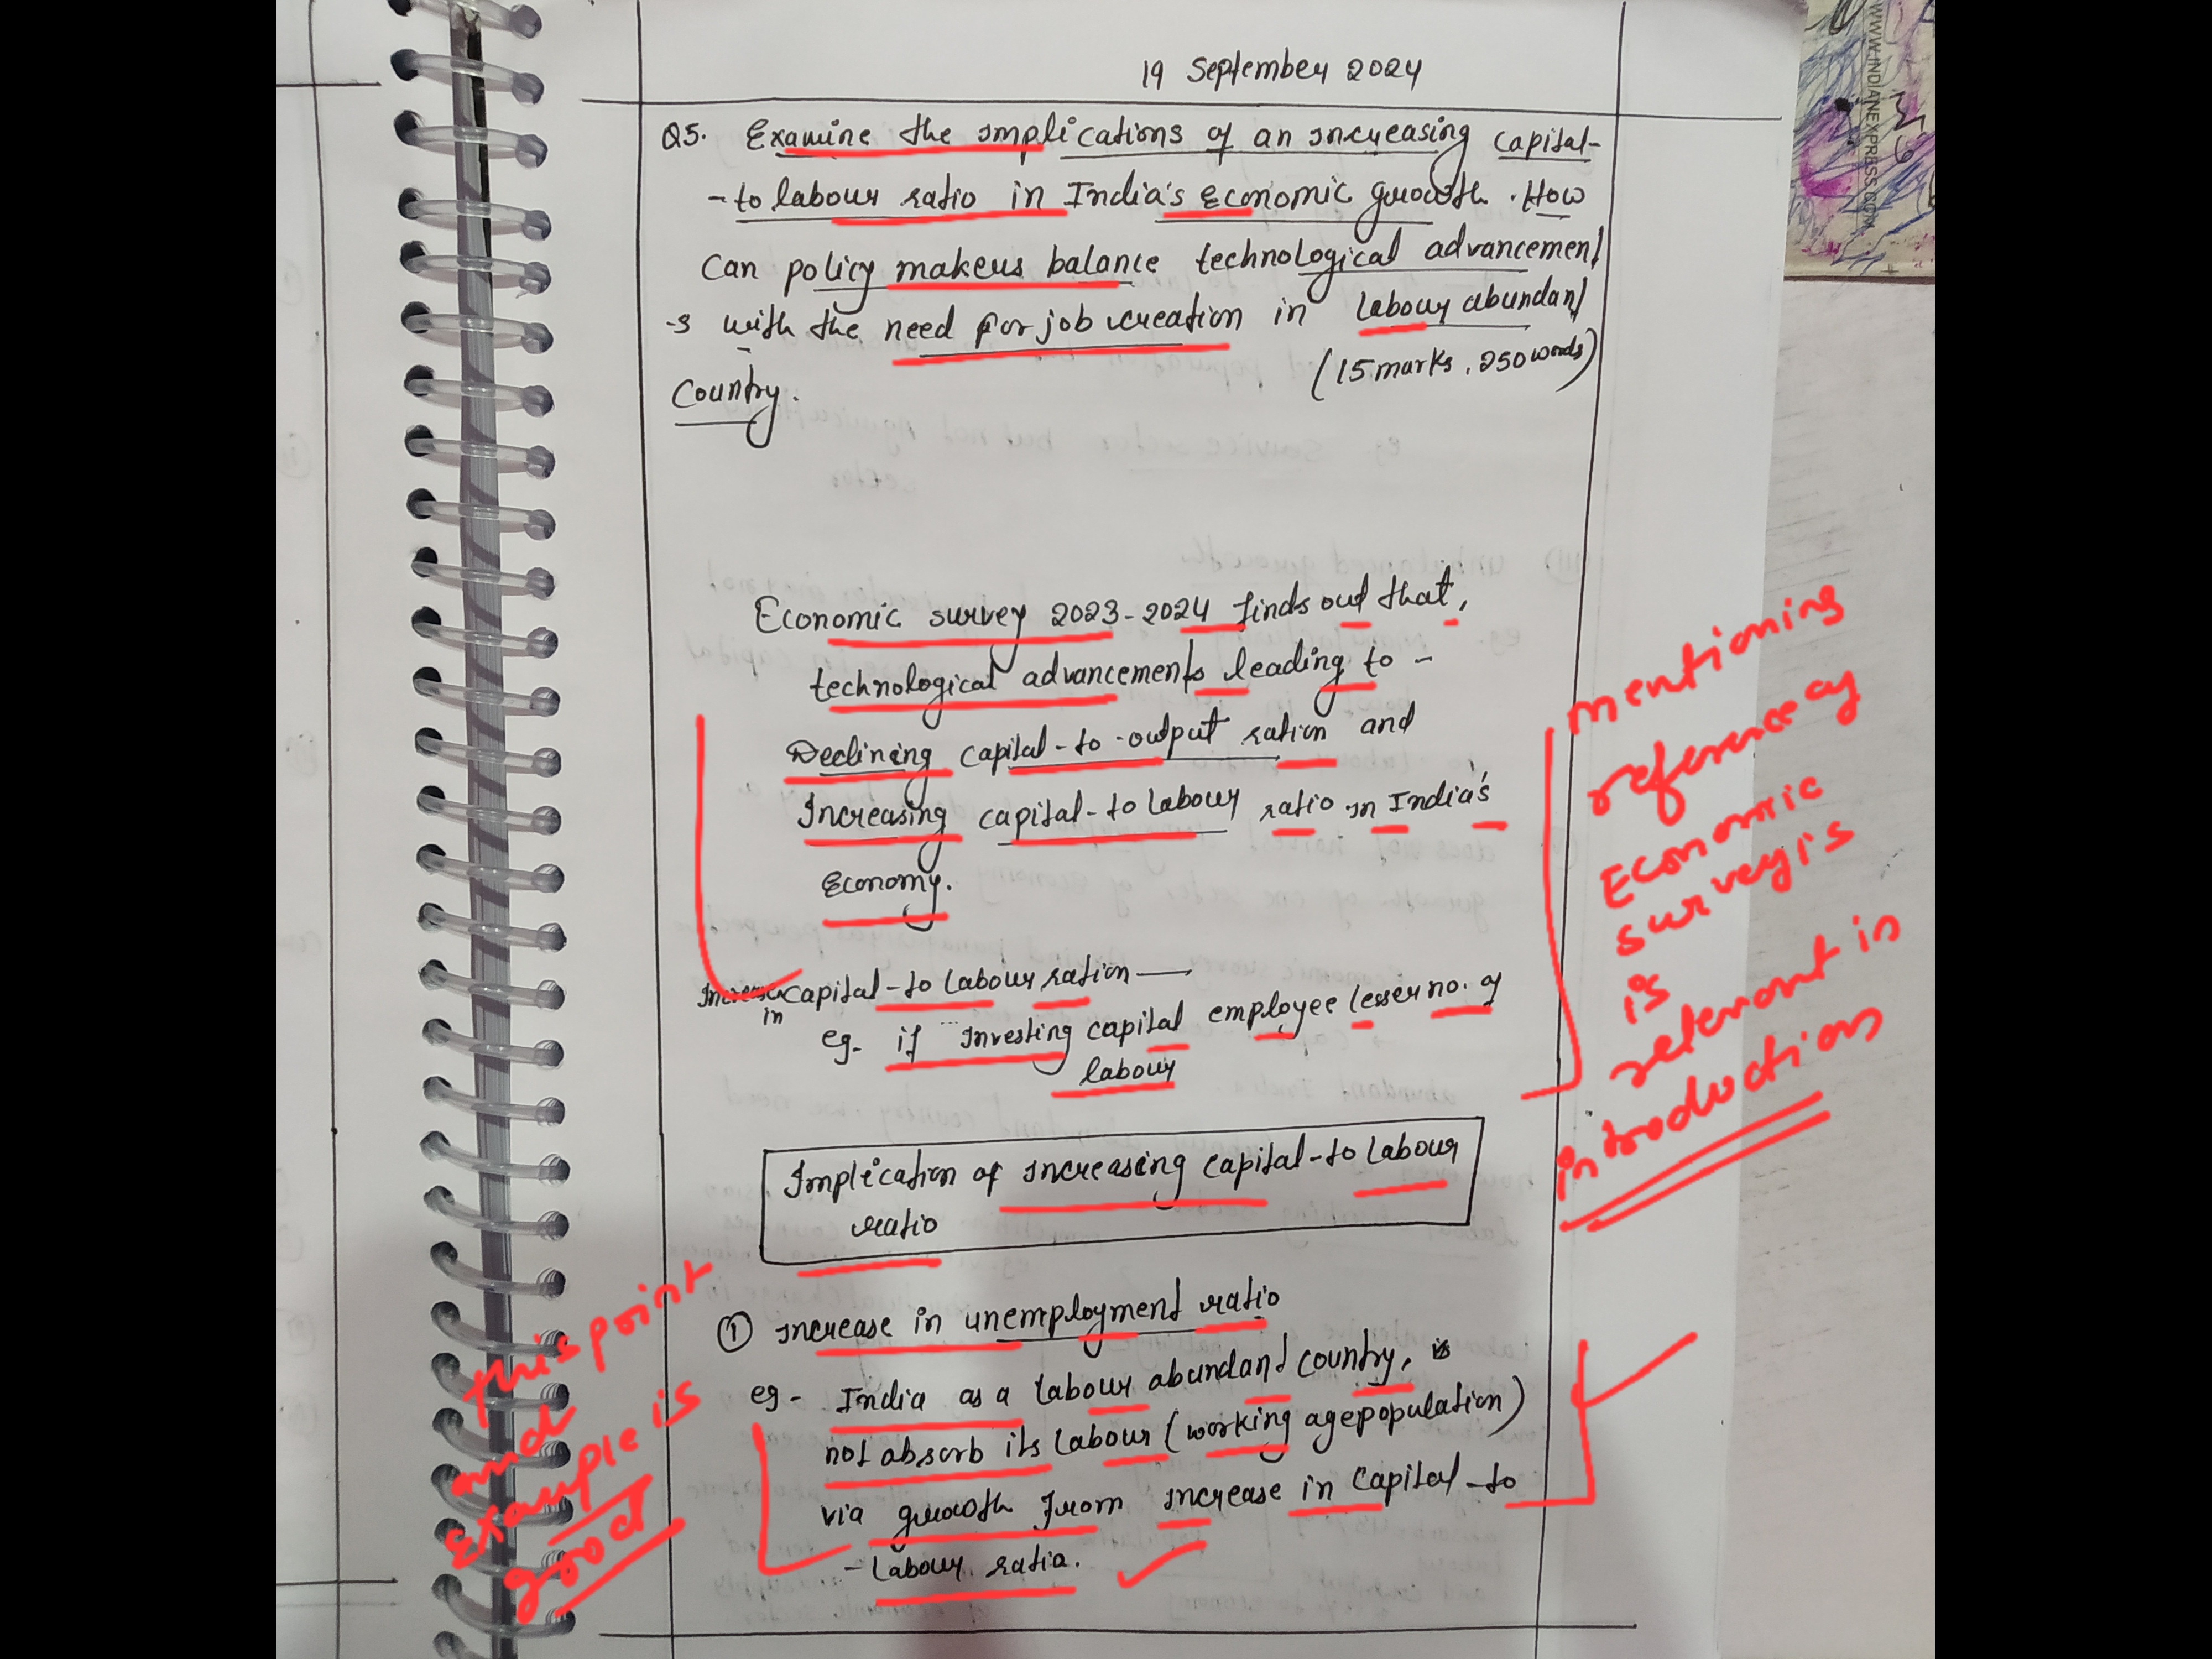 19 September 2024
Q5. Examine the implications of an increasing capital-
- to labour ratio in India's economic growth. How
can policy makers balance technological advancement
-s with the need for job creation in labour abundant
(15 marks, 250 words)
Country.
Economic survey 2023-2024 finds out that,
technological advancements leading to -
Declining capital-to-output ration and
Increasing capital-to labour ratio in India's
Economy.
Increase in capital-to labour ration —
eg- if investing capital employee lesser no. of
labour
Implication of increasing capital-to labour
ratio
① increase in unemployment ratio
eg- India as a labour abundant country, is
not absorb its labour (working age population)
via growth from increase in capital-to
-labour ratio.
mentioning
reference of
Economic
survey is
is
relevant in
introduction
this point
and
example is
good
WWW.INDIANEXPRESS.COM